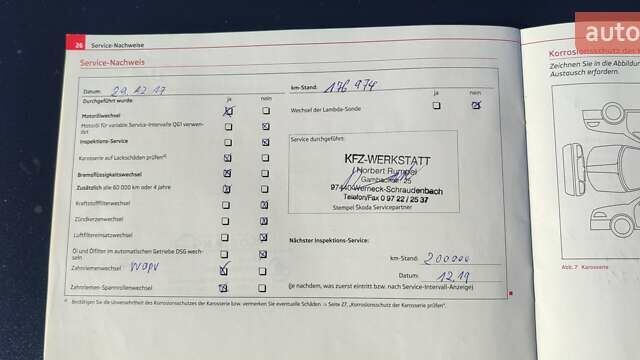 auto
26 Service-Nachweise
Service-Nachweis
Datum: 29.12.17
km-Stand: 176 974
Durchgeführt wurde: ja nein
ja nein
Motorölwechsel
Wechsel der Lambda-Sonde
Motoröl für variable Service-Intervalle QG1 verwen-
det
Inspektions-Service
Karosserie auf Lackschäden prüfen a)
Bremsflüssigkeitswechsel
Zusätzlich alle 60 000 km oder 4 Jahre
Kraftstofffilterwechsel
Zündkerzenwechsel
Luftfiltereinsatzwechsel
Öl und Ölfilter im automatischen Getriebe DSG wech-
seln
Zahnriemenwechsel
Zahnriemen-Spannrollenwechsel
Service durchgeführt:
KFZ-WERKSTATT
Norbert
25
97440 Werneck-Schraudenbach
Telefon/Fax 0 97 22 / 25 37
Stempel Škoda Servicepartner
Nächster Inspektions-Service:
km-Stand: 200000
Datum: 12.19
(je nachdem, was zuerst eintritt bzw. nach Service-Intervall-Anzeige)
a) Bestätigen Sie die Unversehrtheit des Korrosionsschutzes der Karosserie bzw. vermerken Sie eventuelle Schäden -> Seite 27, „Korrosionsschutz der Karosserie prüfen".
Korrosionsschutz der
Zeichnen Sie in die Abbildun
Austausch erfordern.
Abb. 7 Karosserie